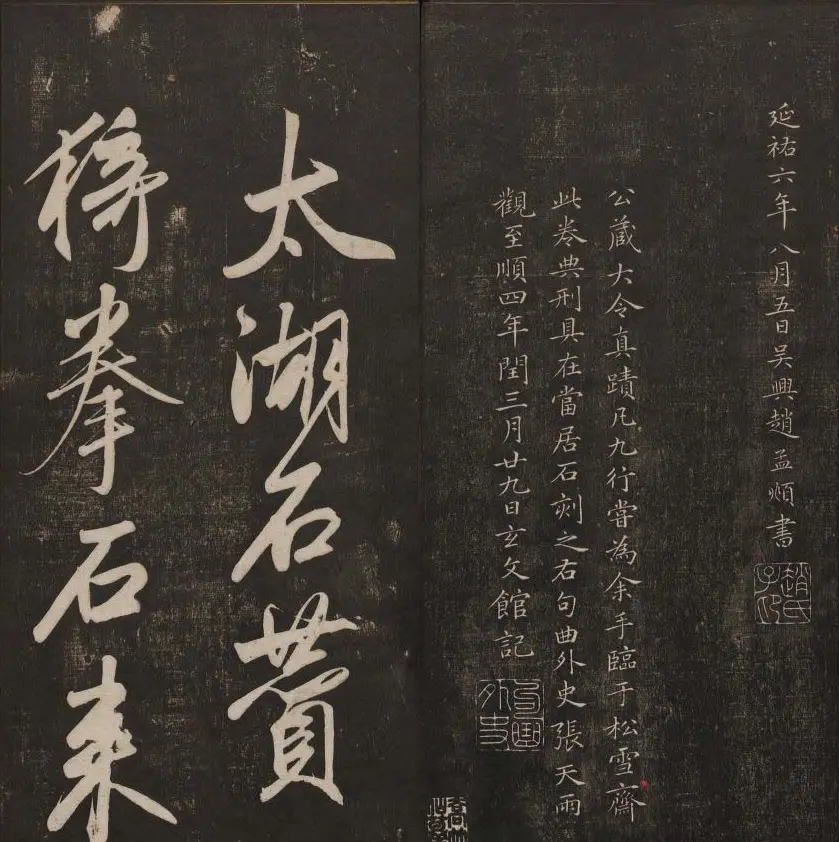 延祐六年八月五日吴興趙孟頫書
趙氏子昂
公蔵大令真蹟凡九行嘗為余手臨于松雪齋
此卷典刑具在當居石刻之右句曲外史張天雨
觀至順四年閏三月廿九日玄文館記
句曲外史
太湖石贊
猗拳石来